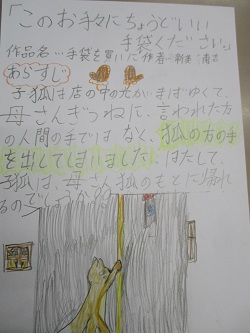 「このお手々にちょうどいい
手袋ください」
作品名…手袋を買いに 作者…新美 南吉
あらすじ
子狐は店の中の光がまばゆくて、
母さんぎつねに、言われた方
の人間の手ではなく、狐の方の手
を出してしまいました。はたして、
子狐は、母さん狐のもとに帰れ
るのでしょうか？